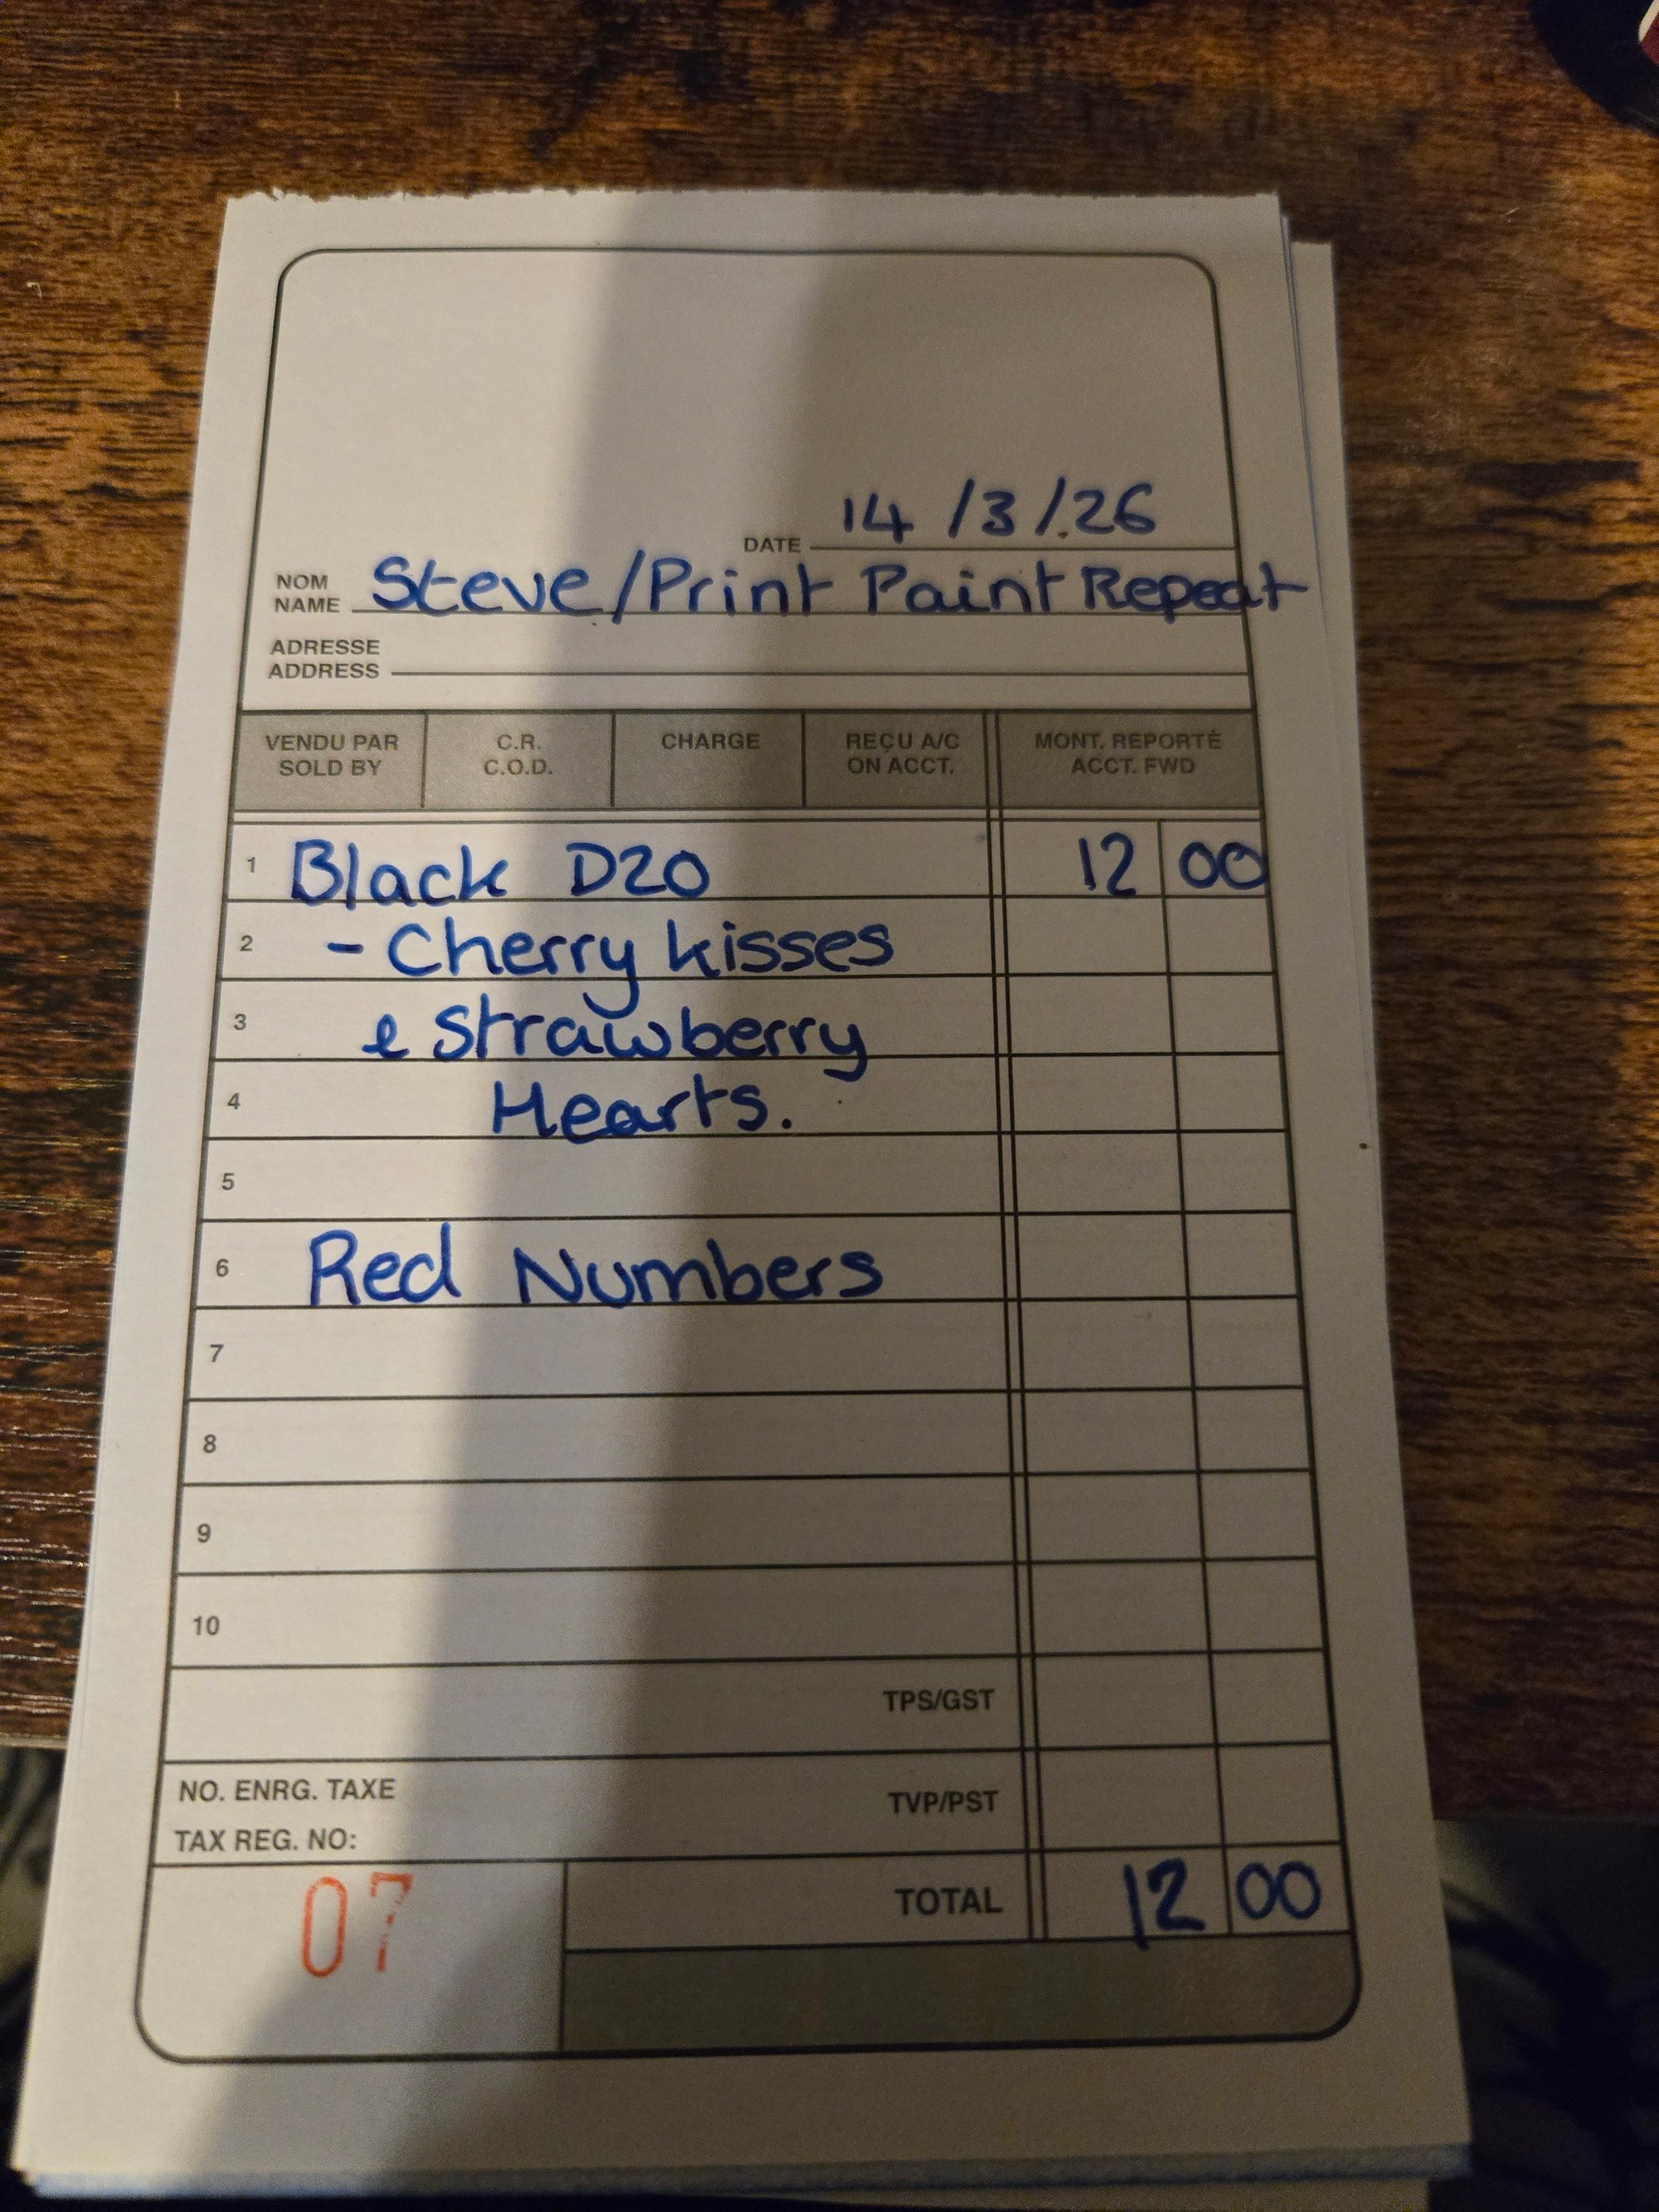 DATE 14/3/26
NOM
NAME Steve/Print Paint Repeat
ADRESSE
ADDRESS
VENDU PAR SOLD BY C.R. C.O.D. CHARGE REÇU A/C ON ACCT. MONT. REPORTÉ ACCT. FWD
1 Black D20 12 00
2 - Cherry kisses
3 & Strawberry
4 Hearts.
5
6 Red Numbers
7
8
9
10
TPS/GST
NO. ENRG. TAXE
TVP/PST
TAX REG. NO:
07 TOTAL 12 00